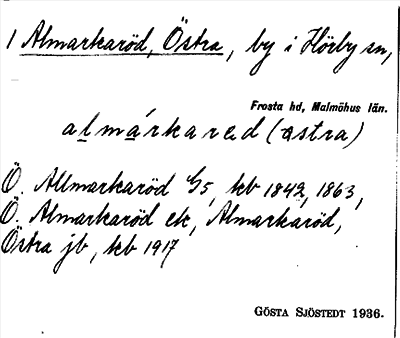 1 Almarkaröd, Östra, by i Hörby sn,
Frosta hd, Malmöhus län.
almárkared (östra)
Ö. Allmarkaröd G5, kb 1842, 1863,
Ö. Almarkaröd ek, Almarkaröd,
Östra jb, kb 1917
GÖSTA SJÖSTEDT 1936.